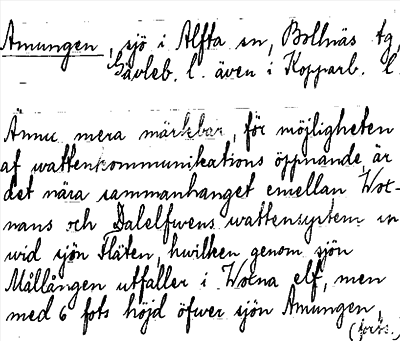 Amungen, sjö i Alfta sn, Bollnäs tg,
Gävleb. l. även i Kopparb. l.
Ännu mera märkbar, för möjligheten
af wattenkommunikations öppnande är
det nära sammanhanget emellan Wox-
nans och Dalelfwens wattensystem
wid sjön Fläten, hwilken genom sjön
Mållången utfaller i Woxna elf, men
med 6 fots höjd öfwer sjön Amungen,
(forts.)